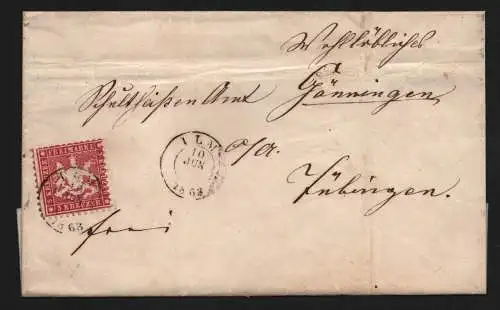 Wohllöbliches
Schultheißen Amt Gönningen
o/a.
Tübingen.
frei
ULM
10
JUN
1863
FREIMARKE
3 KREUZER
18 63